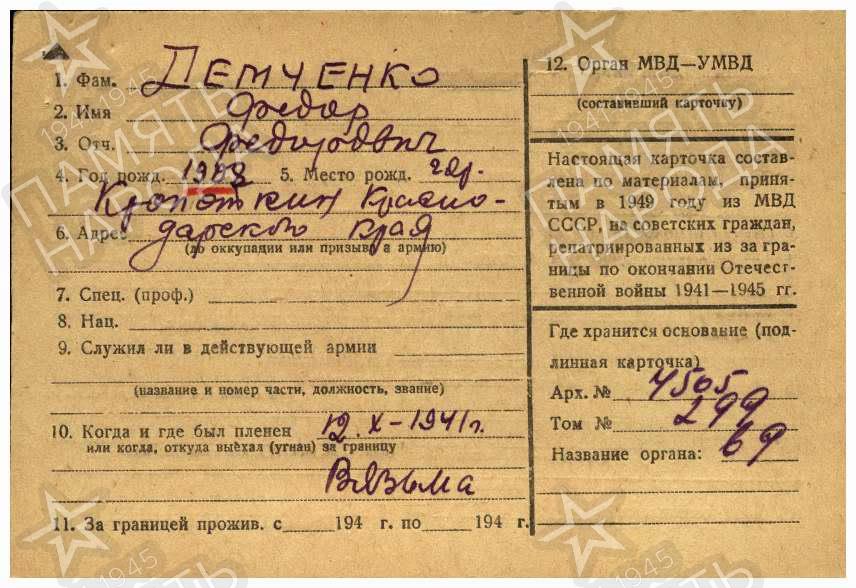 1. Фам. ДЕМЧЕНКО
2. Имя Федор
3. Отч. Федорович
4. Год рожд. 1908 5. Место рожд. гор.
Кропоткин Красно-
6. Адрес дарского края
(до оккупации или призыва в армию)
7. Спец. (проф.)
8. Нац.
9. Служил ли в действующей армии
(название и номер части, должность, звание)
10. Когда и где был пленен 12. X – 1941 г.
или когда, откуда выехал (угнан) за границу
Вязьма
11. За границей прожив. с 194 г. по 194 г.
12. Орган МВД—УМВД
(составивший карточку)
Настоящая карточка состав-
лена по материалам, приня-
тым в 1949 году из МВД
СССР, на советских граждан,
репатриированных из за гра-
ницы по окончании Отечест-
венной войны 1941—1945 гг.
Где хранится основание (под-
линная карточка)
Арх. № 4505
Том № 299
Название органа: 69
ПАМЯТЬ НАРОДА
1941-1945